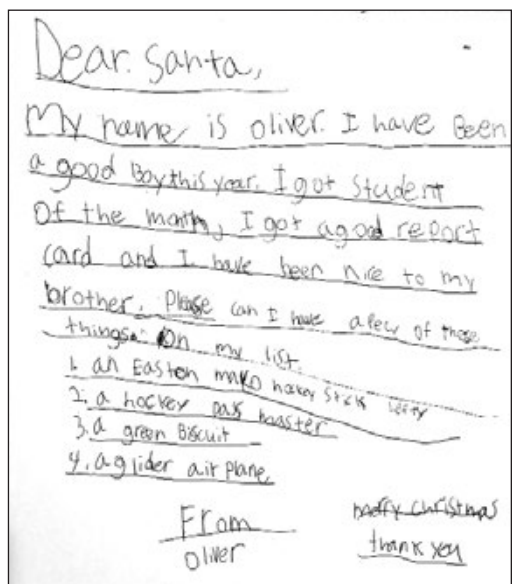 Dear. Santa,
My name is oliver. I have Been
a good Boy this year. I got Student
Of the month, I got a good report
card and I have been nice to my
brother. Please can I have a few of these
things. On my list.
1. an Easton mako hockey stick lefty
2. a hockey pass master
3. a green Biscuit
4. a glider air plane
From
oliver
merry christmas
thank you